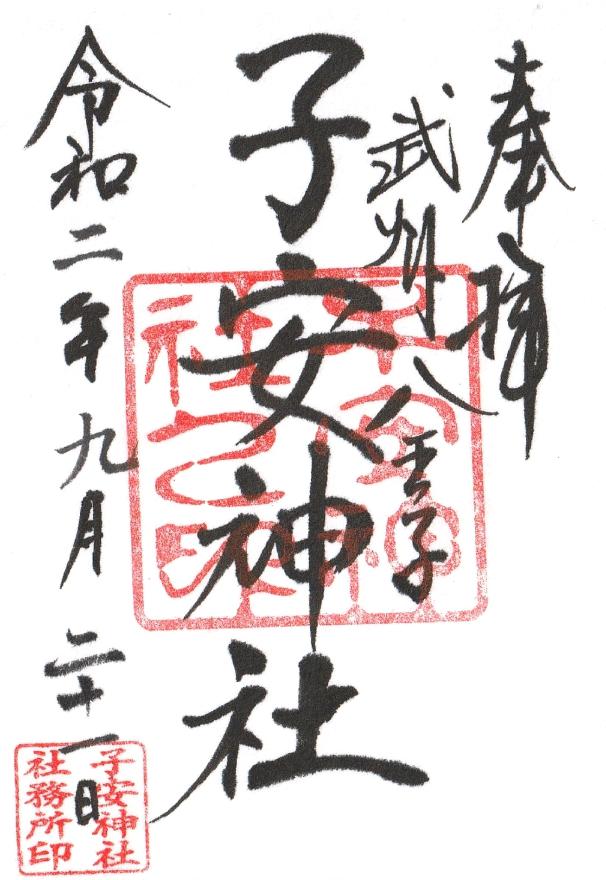 奉拝
武州八王子
子安神社
子安神社之印
令和二年九月二十一日
子安神社
社務所印